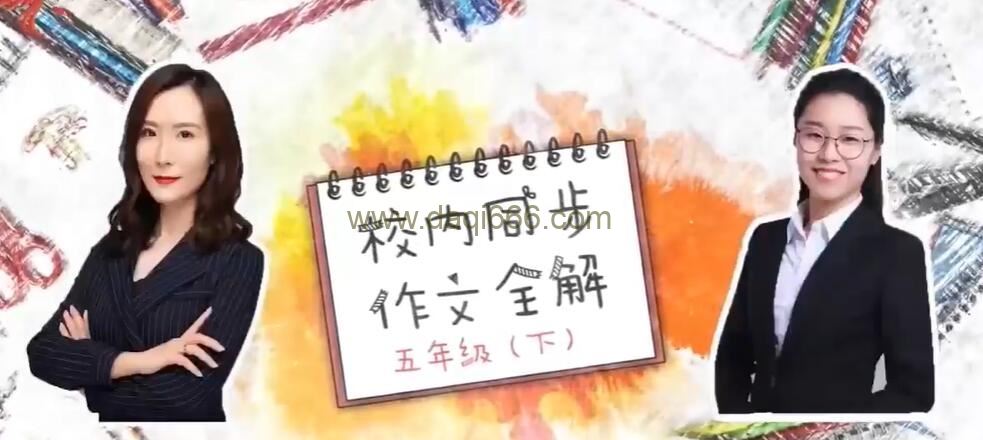 校内同步
www.daqi666.com
作文全解
五年级（下）